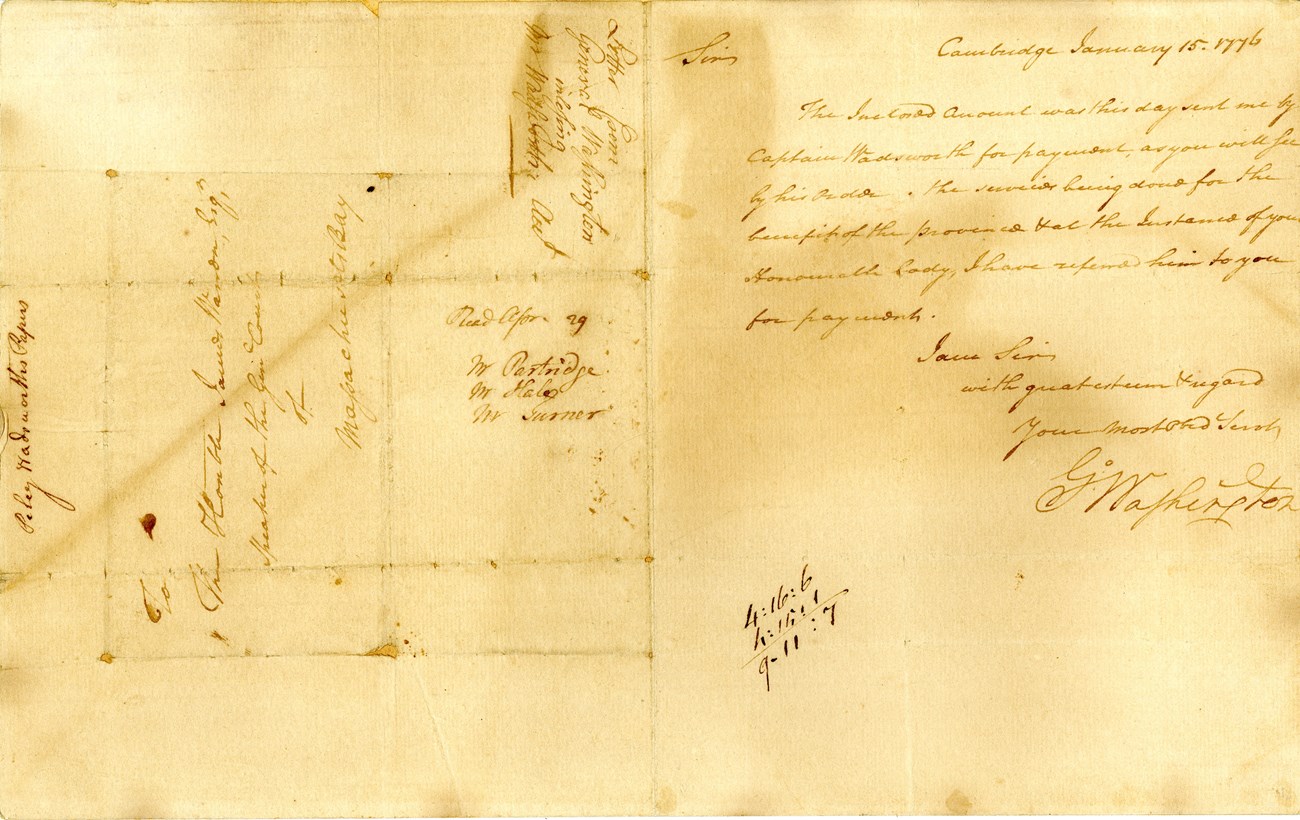 Peleg Wadsworths Papers
To
The Honble James Warren, Esqr
Speaker of the Genl Court
of
Massachusetts Bay
Letter from
General Washington
inclosing
Mr Wadsworths Acct
Read Apr. 29
Mr Partridge
Mr Hale
Mr Turner
Cambridge January 15. 1776
Sir
The Inclosed Amount was this day sent me by
Captain Wadsworth for payment, as you will see
by his order. the services being done for the
benefit of the province & at the Instance of your
Honourable Lady, I have referred him to you
for payment.
I am Sir
with great esteem & regard
Your Most Obed Servt
Go Washington
4:16:6
4:15:1
9-11:7